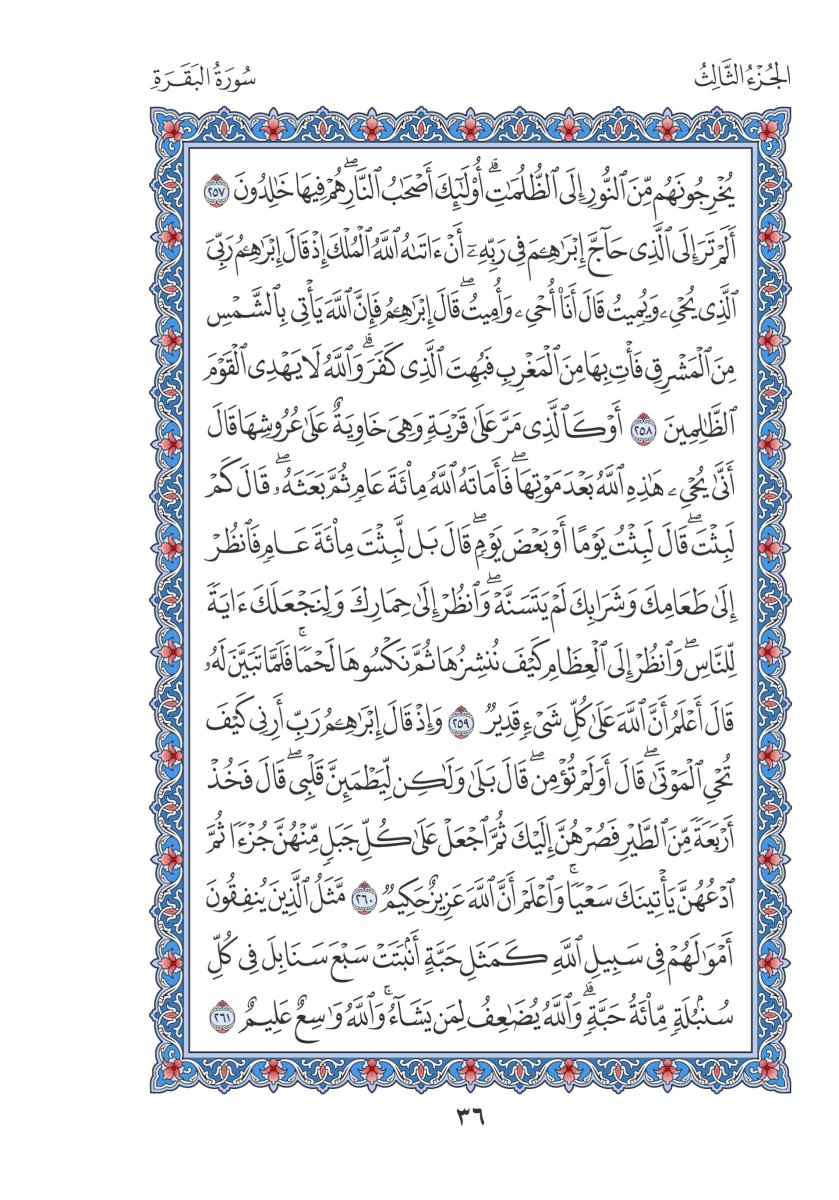 الجُزْءُ الثَّالِثُ
سُورَةُ البَقَرَةِ
يُخْرِجُونَهُم مِّنَ ٱلنُّورِ إِلَى ٱلظُّلُمَٰتِۗ أُوْلَٰٓئِكَ أَصْحَٰبُ ٱلنَّارِۖ هُمْ فِيهَا خَٰلِدُونَ ٢٥٧
أَلَمْ تَرَ إِلَى ٱلَّذِي حَآجَّ إِبْرَٰهِـمَ فِي رَبِّهِۦٓ أَنْ ءَاتَىٰهُ ٱللَّهُ ٱلْمُلْكَ إِذْ قَالَ إِبْرَٰهِـمُ رَبِّيَ
ٱلَّذِي يُحْيِۦ وَيُمِيتُ قَالَ أَنَا۠ أُحْيِۦ وَأُمِيتُۖ قَالَ إِبْرَٰهِـمُ فَإِنَّ ٱللَّهَ يَأْتِي بِٱلشَّمْسِ
مِنَ ٱلْمَشْرِقِ فَأْتِ بِهَا مِنَ ٱلْمَغْرِبِ فَبُهِتَ ٱلَّذِي كَفَرَۗ وَٱللَّهُ لَا يَهْدِي ٱلْقَوْمَ
ٱلظَّٰلِمِينَ ٢٥٨ أَوْ كَٱلَّذِي مَرَّ عَلَىٰ قَرْيَةٍ وَهِيَ خَاوِيَةٌ عَلَىٰ عُرُوشِهَا قَالَ
أَنَّىٰ يُحْيِۦ هَٰذِهِ ٱللَّهُ بَعْدَ مَوْتِهَاۖ فَأَمَاتَهُ ٱللَّهُ مِاْئَةَ عَامٍ ثُمَّ بَعَثَهُۥۖ قَالَ كَمْ
لَبِثْتَۖ قَالَ لَبِثْتُ يَوْمًا أَوْ بَعْضَ يَوْمٍۖ قَالَ بَل لَّبِثْتَ مِاْئَةَ عَامٍ فَٱنظُرْ
إِلَىٰ طَعَامِكَ وَشَرَابِكَ لَمْ يَتَسَنَّهْۖ وَٱنظُرْ إِلَىٰ حِمَارِكَ وَلِنَجْعَلَكَ ءَايَةً
لِّلنَّاسِۖ وَٱنظُرْ إِلَى ٱلْعِظَامِ كَيْفَ نُنشِرُهَا ثُمَّ نَكْسُوهَا لَحْمًاۚ فَلَمَّا تَبَيَّنَ لَهُۥ
قَالَ أَعْلَمُ أَنَّ ٱللَّهَ عَلَىٰ كُلِّ شَيْءٍ قَدِيرٌ ٢٥٩ وَإِذْ قَالَ إِبْرَٰهِـمُ رَبِّ أَرِنِي كَيْفَ
تُحْيِ ٱلْمَوْتَىٰۖ قَالَ أَوَلَمْ تُؤْمِنۖ قَالَ بَلَىٰ وَلَٰكِن لِّيَطْمَئِنَّ قَلْبِيۖ قَالَ فَخُذْ
أَرْبَعَةً مِّنَ ٱلطَّيْرِ فَصُرْهُنَّ إِلَيْكَ ثُمَّ ٱجْعَلْ عَلَىٰ كُلِّ جَبَلٍ مِّنْهُنَّ جُزْءًا ثُمَّ
ٱدْعُهُنَّ يَأْتِينَكَ سَعْيًاۚ وَٱعْلَمْ أَنَّ ٱللَّهَ عَزِيزٌ حَكِيمٌ ٢٦٠ مَّثَلُ ٱلَّذِينَ يُنفِقُونَ
أَمْوَٰلَهُمْ فِي سَبِيلِ ٱللَّهِ كَمَثَلِ حَبَّةٍ أَنۢبَتَتْ سَبْعَ سَنَابِلَ فِي كُلِّ
سُنۢبُلَةٍ مِّاْئَةُ حَبَّةٍۗ وَٱللَّهُ يُضَٰعِفُ لِمَن يَشَآءُۚ وَٱللَّهُ وَٰسِعٌ عَلِيمٌ ٢٦١
٣٦